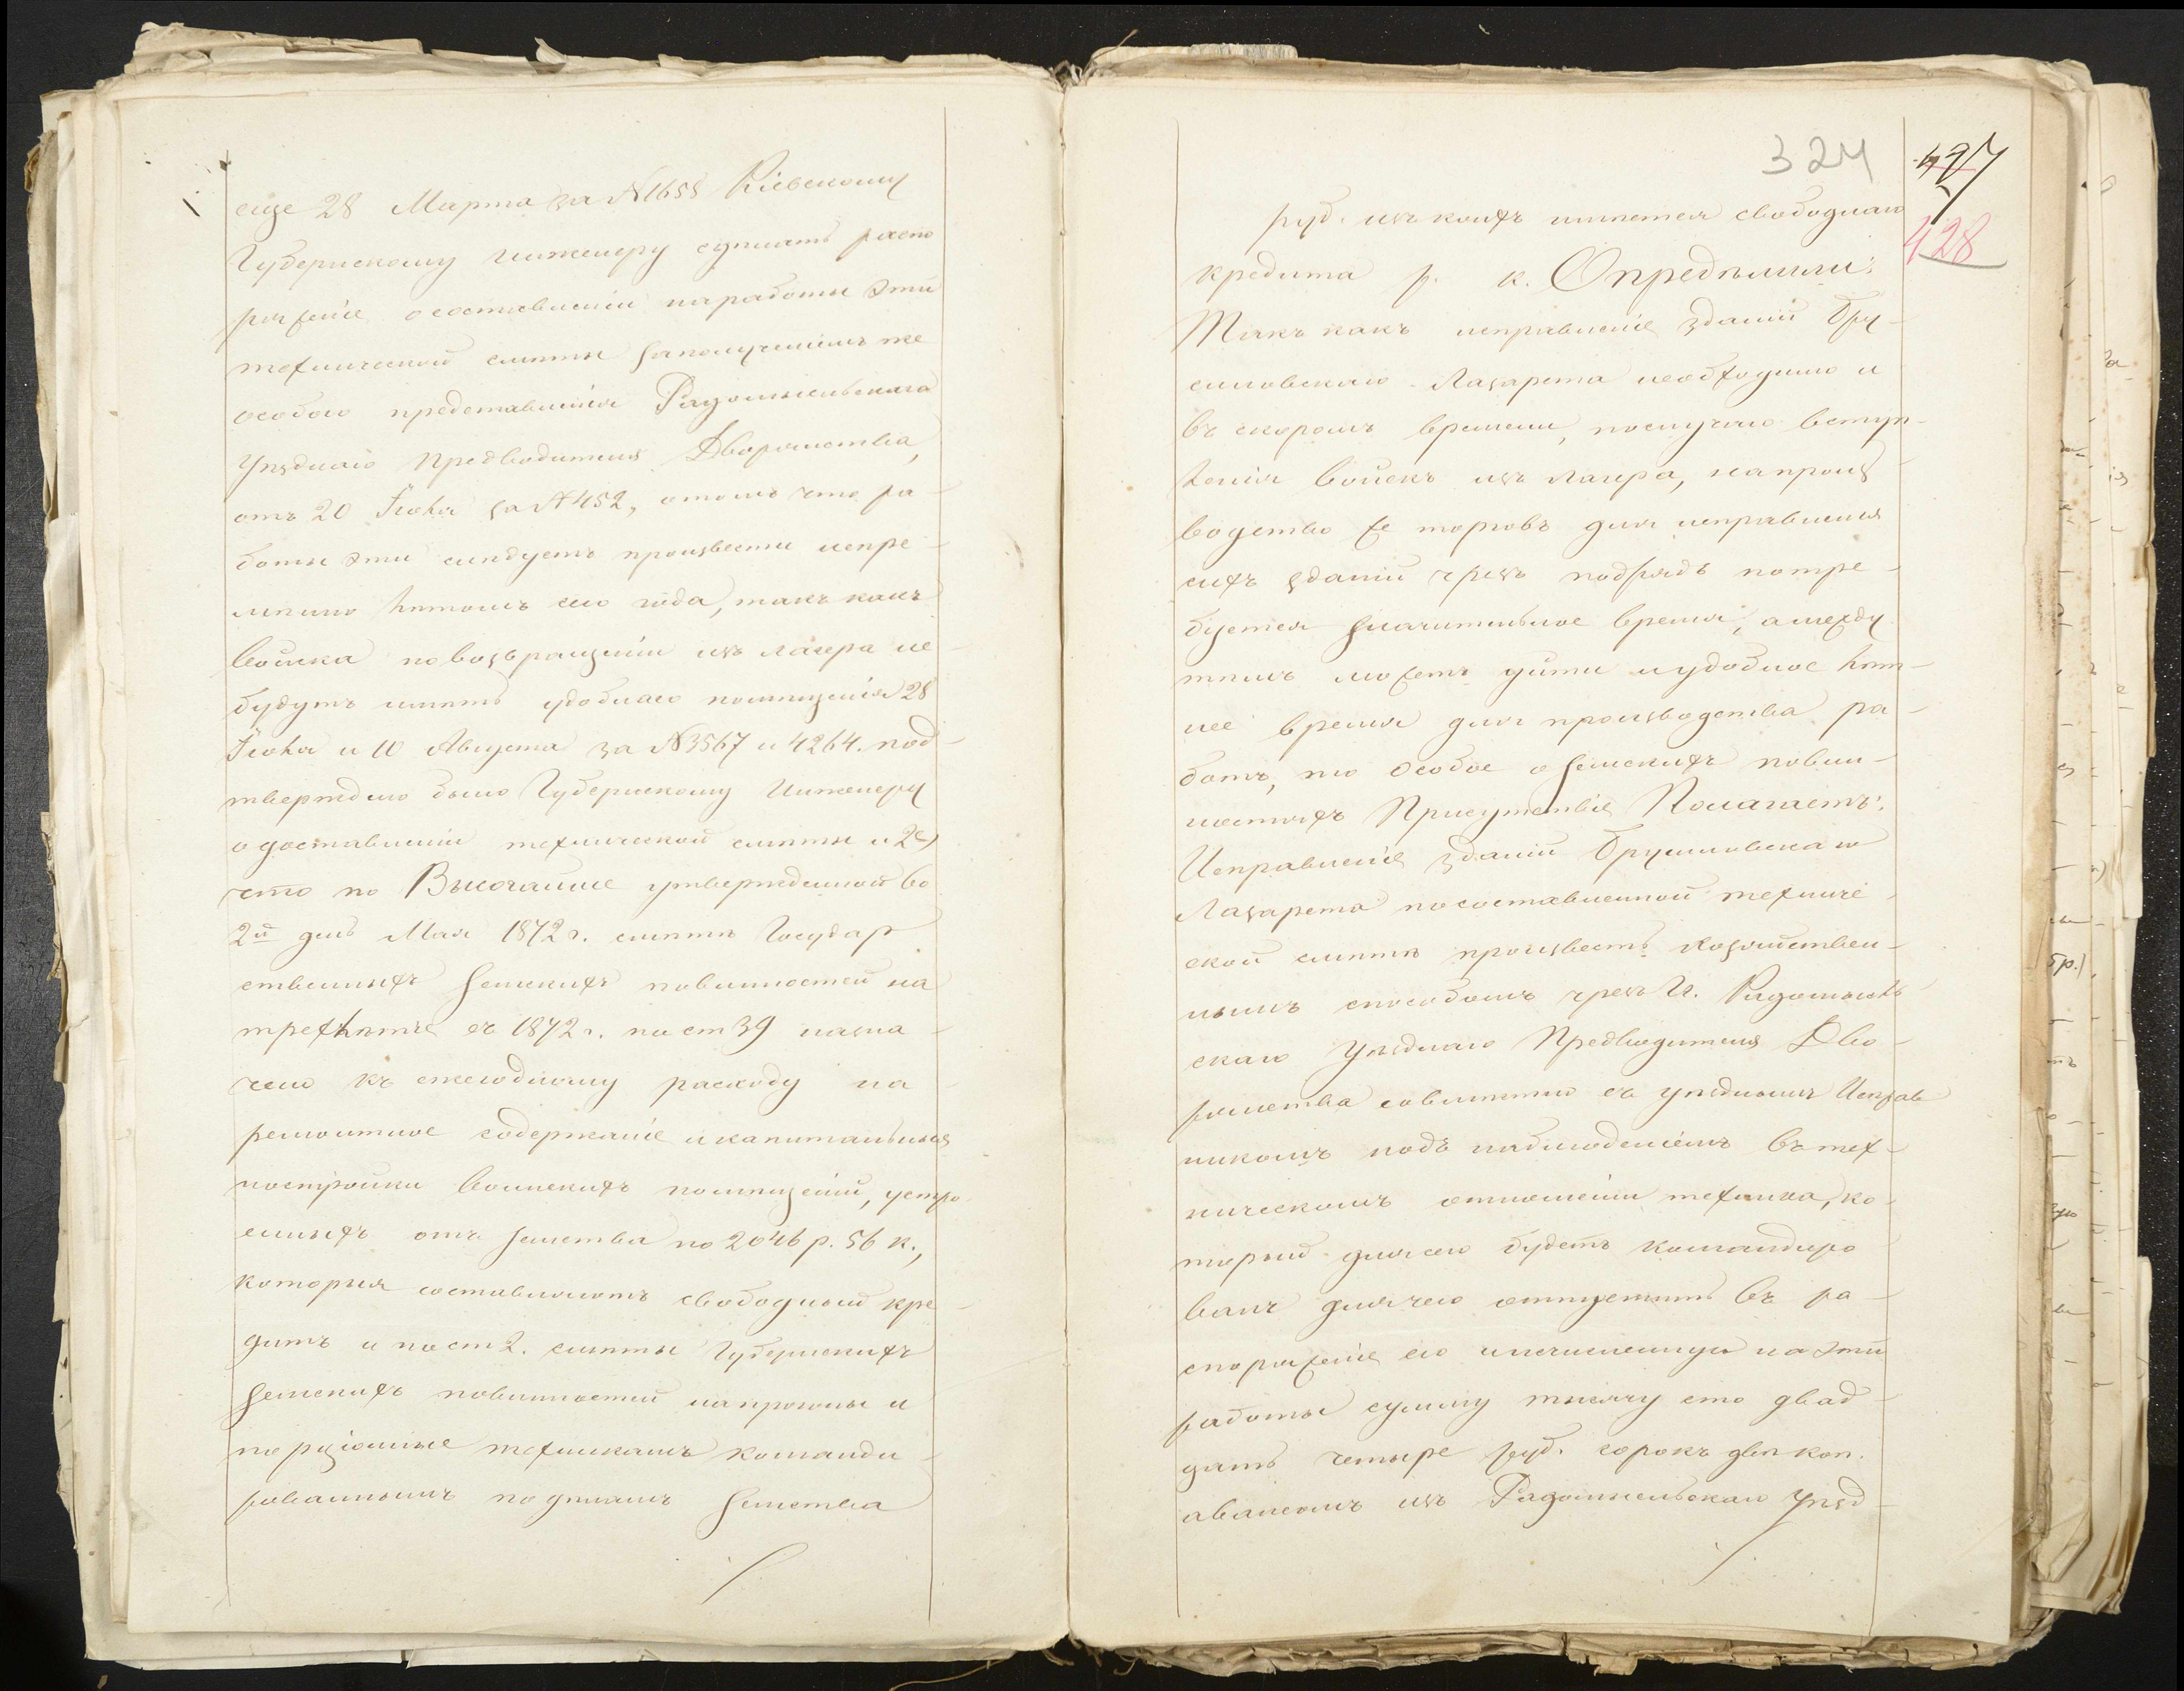 еще 28 Марта за № 1658 Кіевскому
Губернскому инженеру сдѣлать распо
ряженіе о составленіи на работы эти
технической смѣты заполученіемъ же
особого представленія Радомысльскаго
Уѣзднаго Предводителя Дворянства,
отъ 20 Іюля за № 452, о томъ что ра-
боты эти слѣдуетъ произвести непре-
мѣнно лѣтомъ сего года, такъ какъ
войска по возвращеніи изъ лагера не-
будутъ имѣть удобнаго помѣщенія 28
Іюля и 10 Августа за № 3567 и 4264. под-
тверждено было Губернскому Инженеру
о доставленіи технической смѣты и 2е,
что по Высочайше утвержденной во
2й день Мая 1872 г. смѣтѣ Государ
ственныхъ Земскихъ повинностей на
трехлѣтіе съ 1872 г. по ст 39 назна-
чено къ ежегодному расходу на
ремонтное содержаніе и капитальныя
постройки воинскихъ помѣщеній, устро
енныхъ отъ Земства по 2046 р. 56 к.,
которыя составляютъ свободный кре-
дитъ и по ст 2. смѣты Губернскихъ
Земскихъ повинностей на прогоны и
порціонные техникамъ командн-
рованнымъ по дѣламъ Земства
324
427
428
руб. изъ коихъ имѣется свободнаго
кредита р. к. Опредѣлили:
Такъ какъ исправленіе зданій Бру-
силовскаго Лазарета необходимо и
въ скоромъ времени, послучаю вступ-
ленія войскъ изъ лагера, на произ-
водство же торговъ для исправленія
сихъ зданій чрезъ подрядъ потре-
буется значительное время, а между
тѣмъ можетъ уйти и удобное лѣт-
нее время для производства ра-
ботъ, то Особое о Земскихъ повин-
ностяхъ Присутствіе Полагаетъ:
Исправленіе зданій Брусиловскаго
Лазарета по составленной техниче
ской смѣтѣ произвесть хозяйствен-
нымъ способомъ чрезъ Г. Радомысль
скаго Уѣзднаго Предводителя Дво-
рянства совмѣстно съ уѣзднымъ Исправ
никомъ подъ наблюденіемъ въ тех-
ническомъ отношеніи техника, ко-
торый для сего будетъ командиро
ванъ для чего отпустить въ ра-
споряженіе его исчисленную на эти
работы сумму тысячу сто двад-
цать четыре руб. сорокъ двѣ коп.
авансомъ изъ Радомысльскаго Уѣзд-